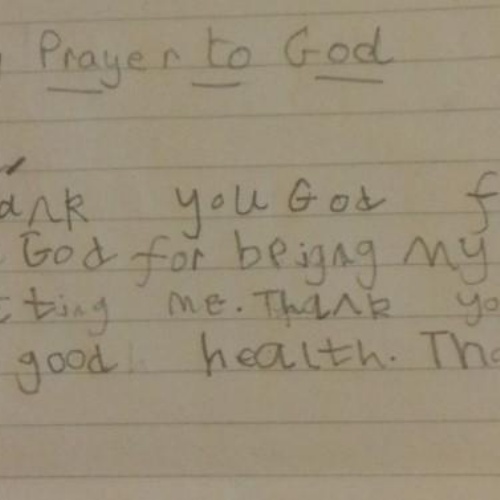 Prayer to God
ank you God f
God for beigng my
cting me. Thank yo
good health. Tha